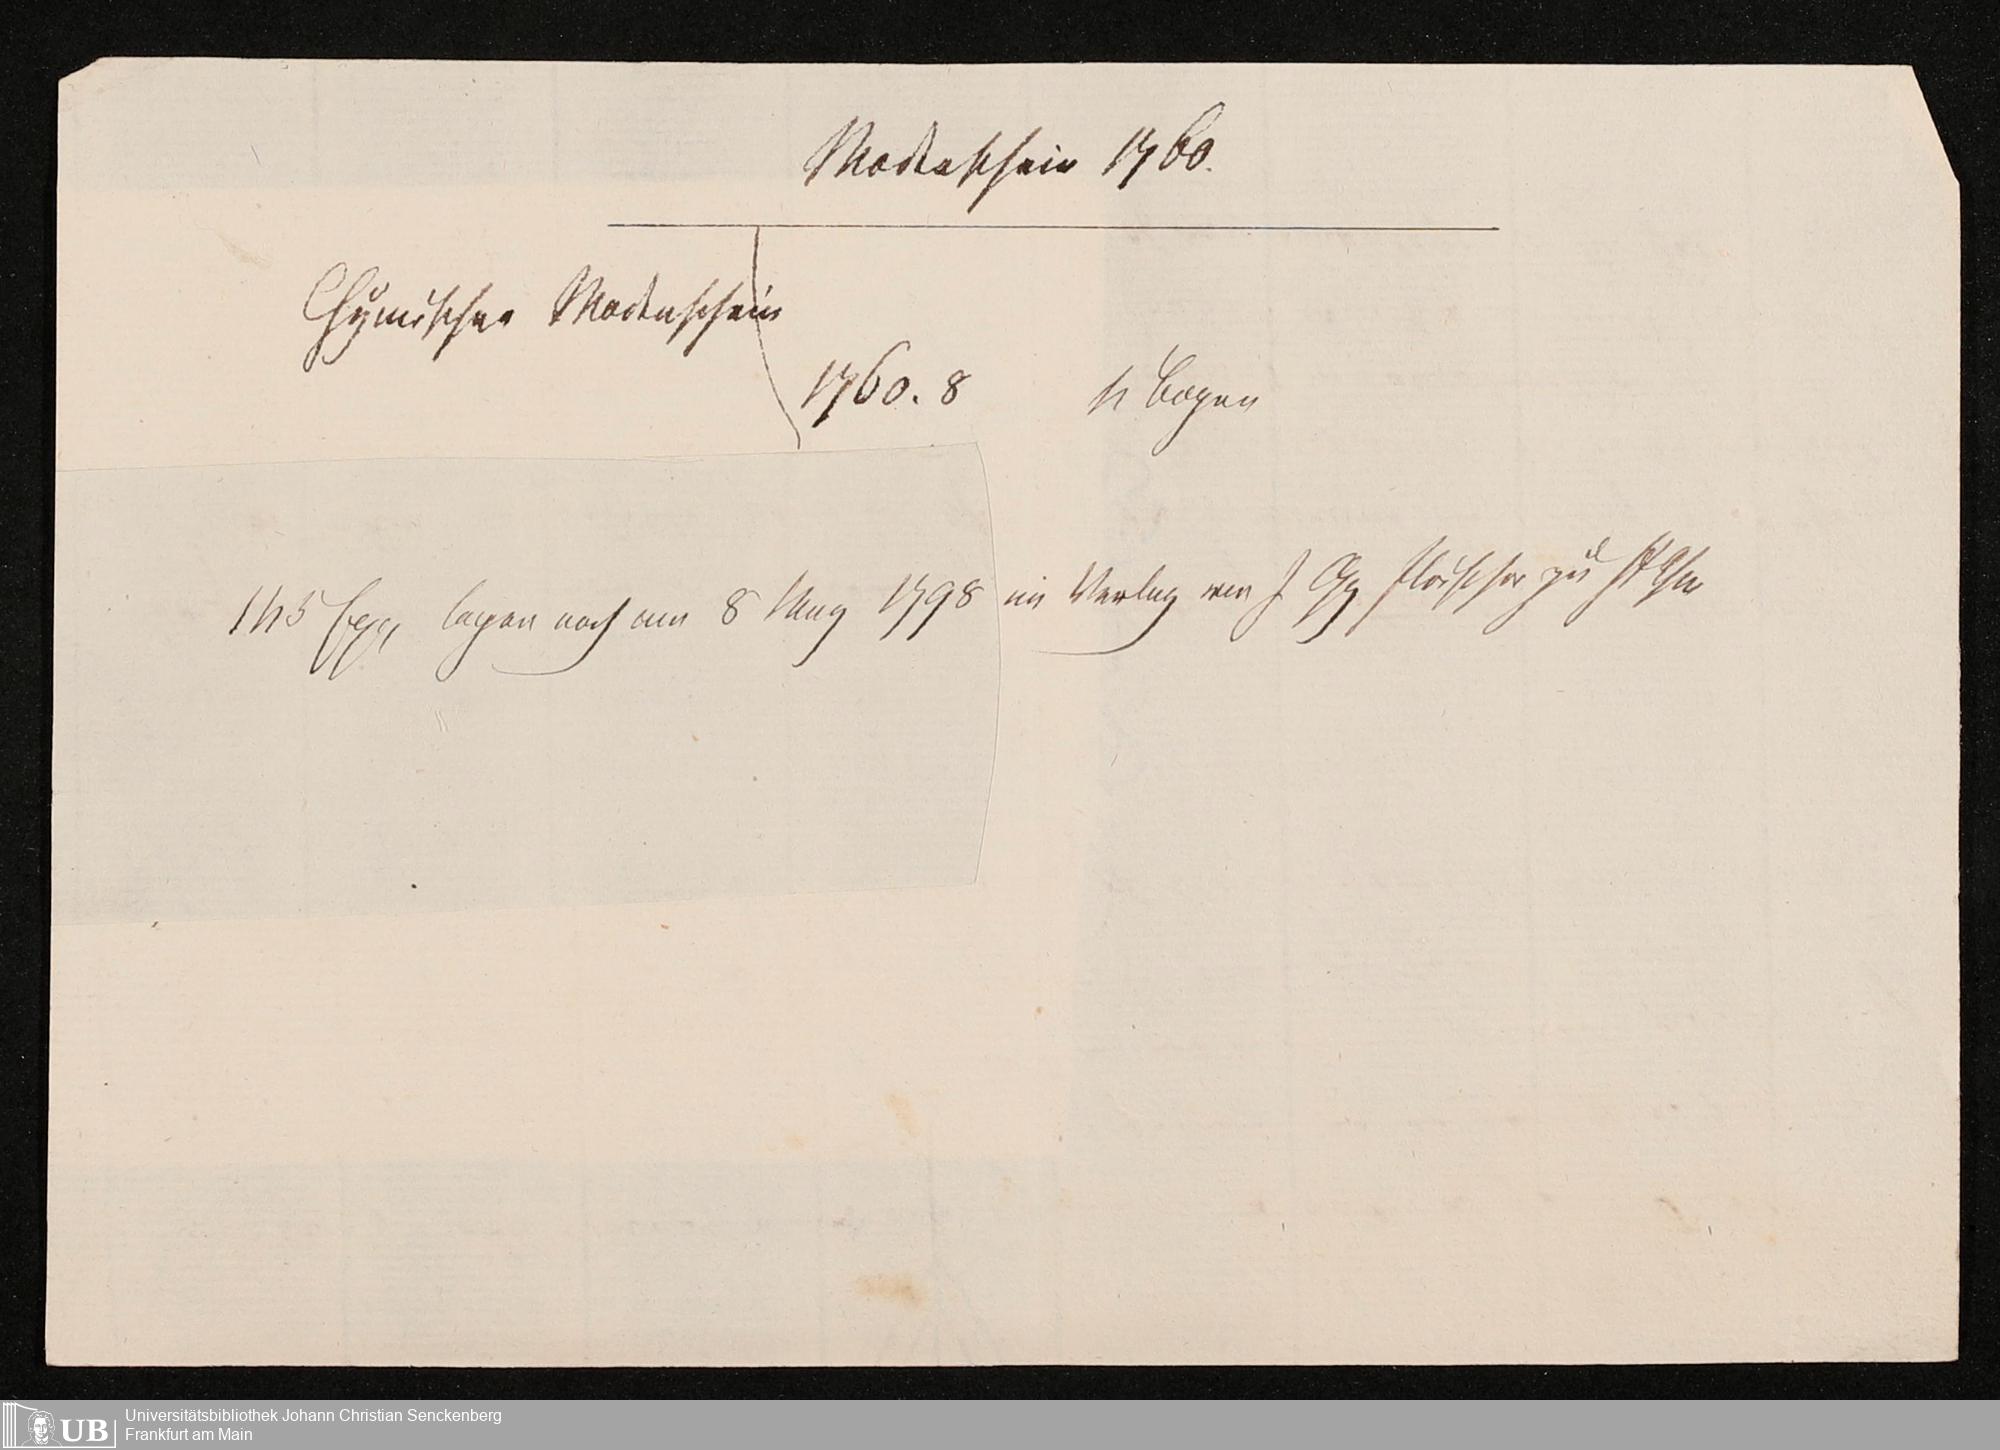 Modenschein 1760.
Chymischer Modenschein
1760. 8 11 Bogen
145 Expl. lagen noch am 8 May 1798 im Verlag von J Gg Fleischer zu
Universitätsbibliothek Johann Christian Senckenberg
Frankfurt am Main
UB